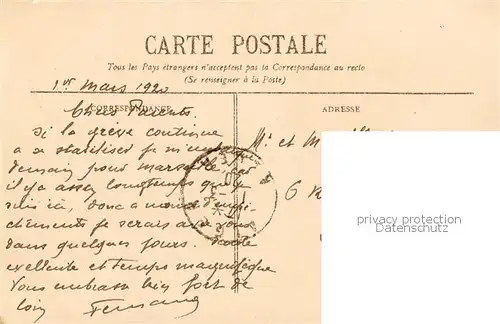 CARTE POSTALE
Tous les Pays étrangers n'acceptent pas la Correspondance au recto
(Se renseigner à la Poste)
1er Mars 1920
CORRESPONDANCE
ADRESSE
Chers Parents.
Si la grève continue
Mr et M
a se stabiliser je m'embarque
demain pour Marseille, car
il y a assez longtemps que je
6 R
suis ici, donc a moins d'empê-
chements je serais avec vous
dans quelques jours. Santé
excellente et temps magnifique
Vous embrasse bien fort de
loin Fernand
privacy protection
Datenschutz